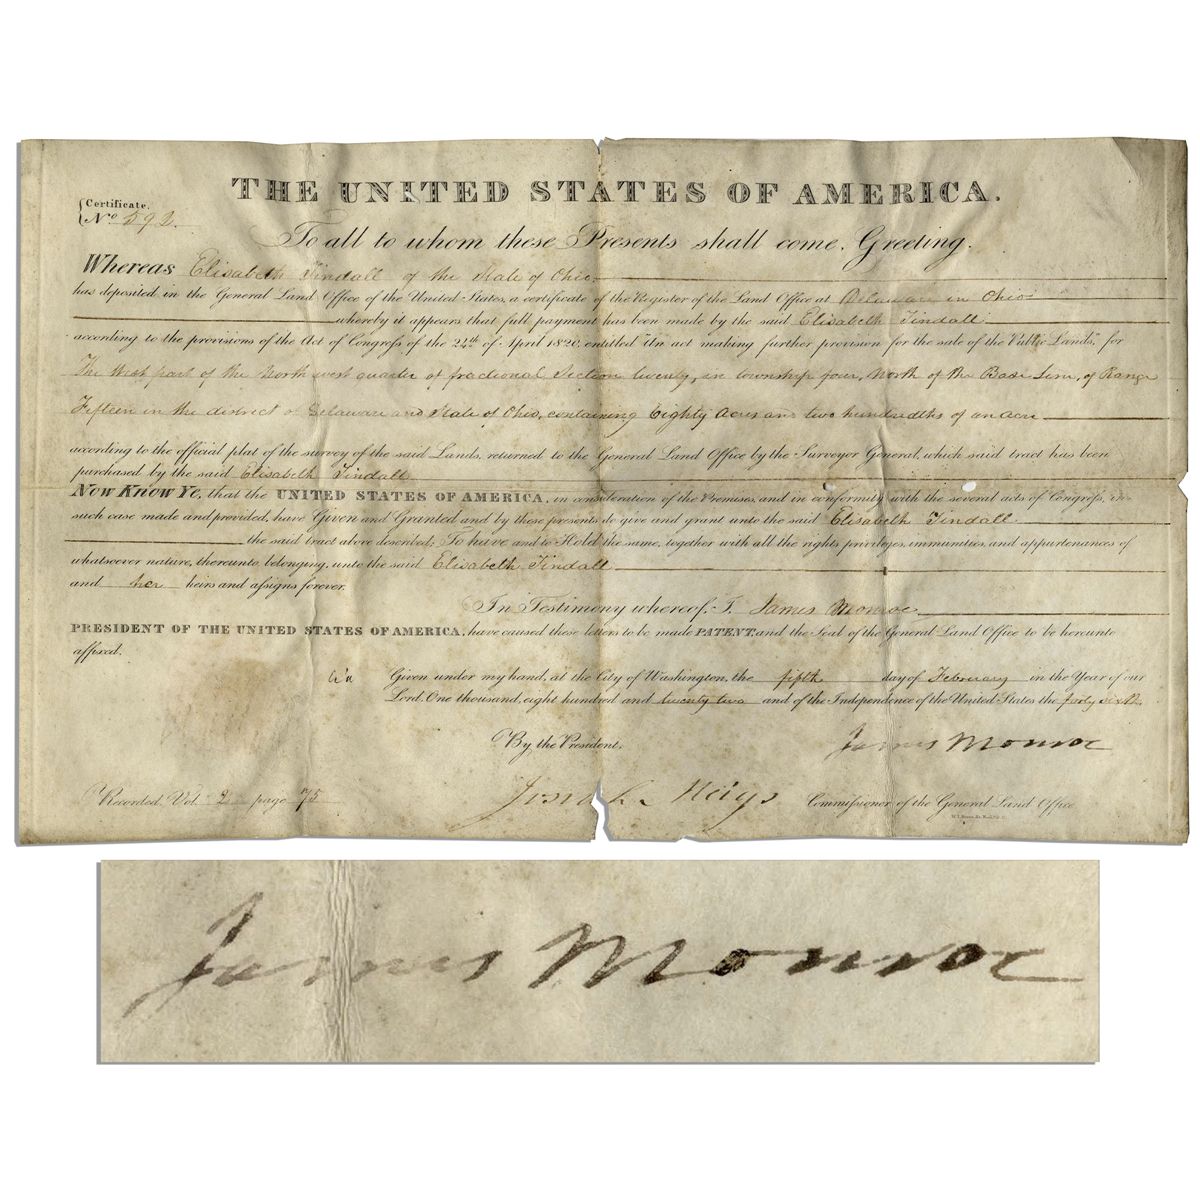 THE UNITED STATES OF AMERICA.
Certificate.
No 592.
To all to whom these Presents shall come, Greeting.
Whereas Elisabeth Tindall of the State of Ohio
has deposited in the General Land Office of the United States, a certificate of the Register of the Land Office at Delaware in Ohio
whereby it appears that full payment has been made by the said Elisabeth Tindall
according to the provisions of the Act of Congress of the 24th of April 1820, entitled "An act making further provision for the sale of the Public Lands," for
The West part of the North west quarter of fractional Section twenty, in township four, North of the Base Line, of Range
Fifteen in the district of Delaware and State of Ohio, containing Eighty Acres and two hundredths of an acre
according to the official plat of the survey of the said Lands, returned to the General Land Office by the Surveyor General, which said tract has been
purchased by the said Elisabeth Tindall
Now Know Ye, that the UNITED STATES OF AMERICA, in consideration of the Premises, and in conformity with the several acts of Congress, in
such case made and provided, have Given and Granted and by these presents do give and grant unto the said Elisabeth Tindall
the said tract above described; To have and to Hold the same, together with all the rights privileges, immunities, and appurtenances of
whatsoever nature, thereunto belonging, unto the said Elisabeth Tindall
and her heirs and assigns forever.
In Testimony whereof, I, James Monroe
PRESIDENT OF THE UNITED STATES OF AMERICA, have caused these letters to be made PATENT, and the Seal of the General Land Office to be hereunto
affixed.
Given under my hand, at the City of Washington, the fifth day of February in the Year of our
Lord, One thousand, eight hundred and twenty two and of the Independence of the United States the forty sixth
By the President,
James Monroe
Recorded, Vol. 2 page 75
Josiah Meigs Commissioner of the General Land Office
James Monroe